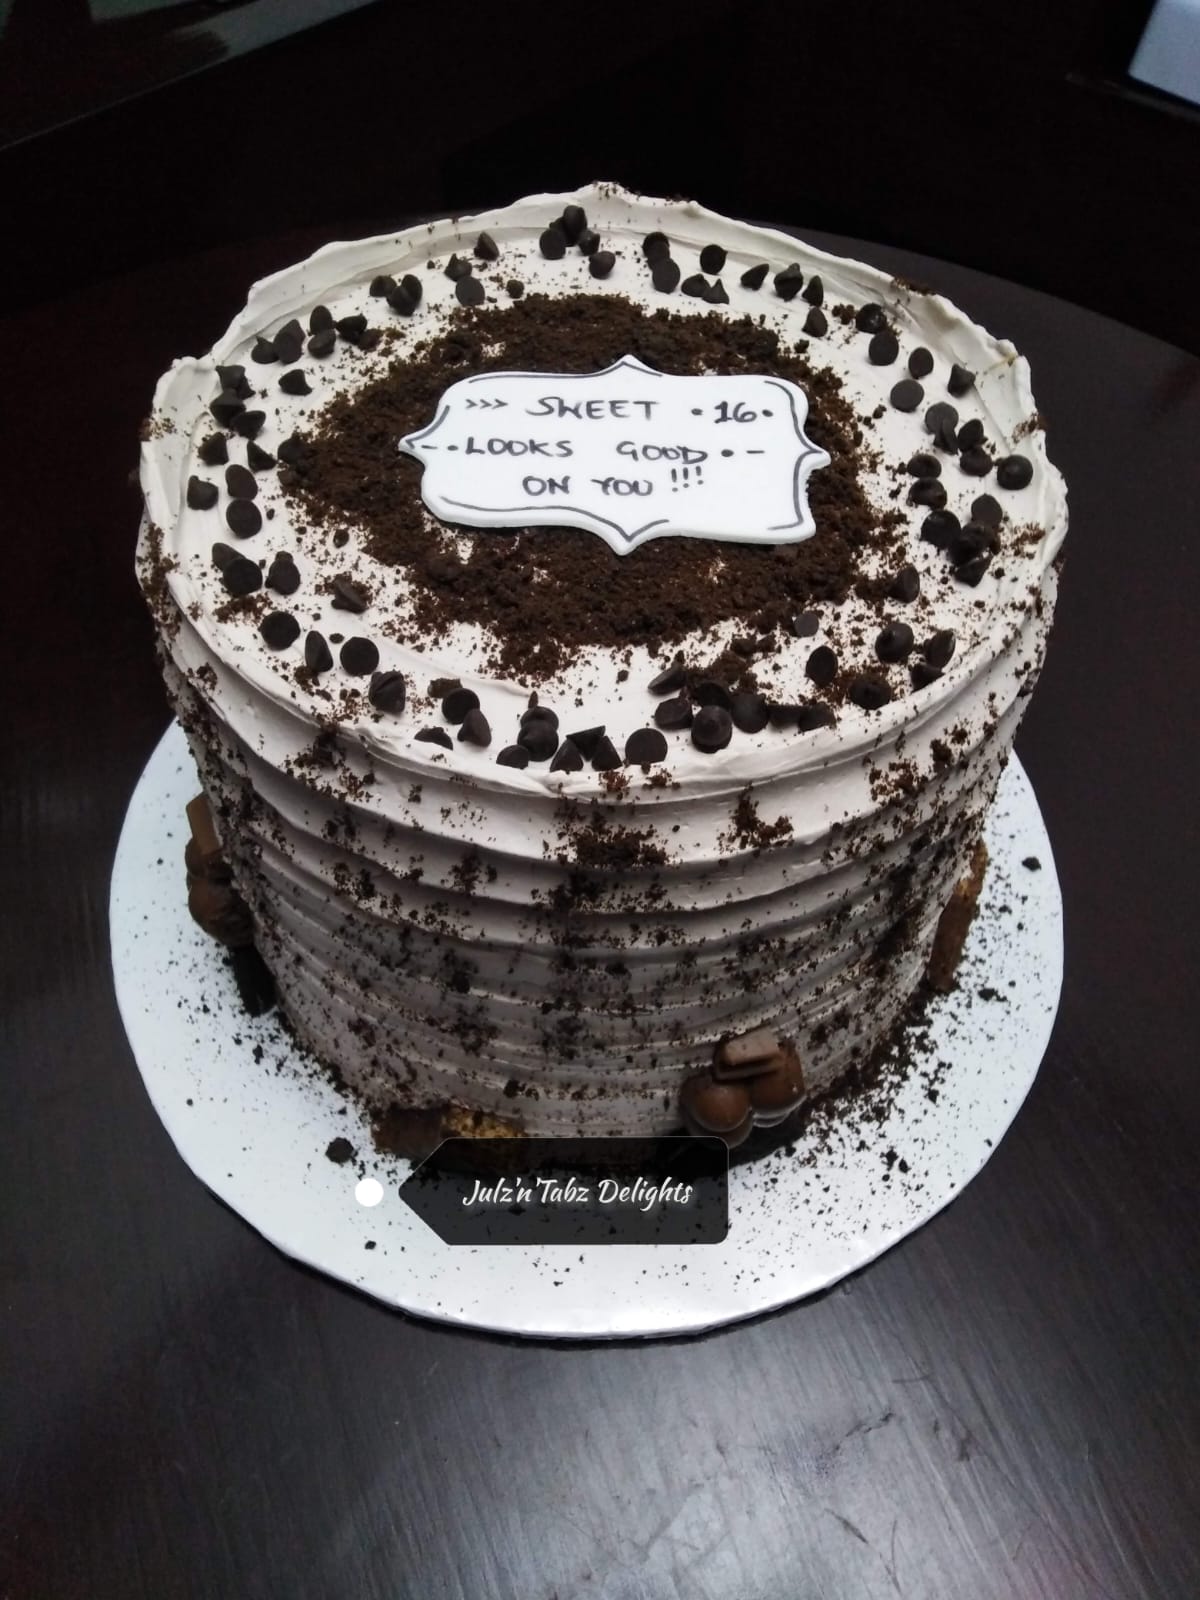 >>> SWEET •16•
--•LOOKS GOOD•-
ON YOU !!!
Julz'n'Tabz Delights